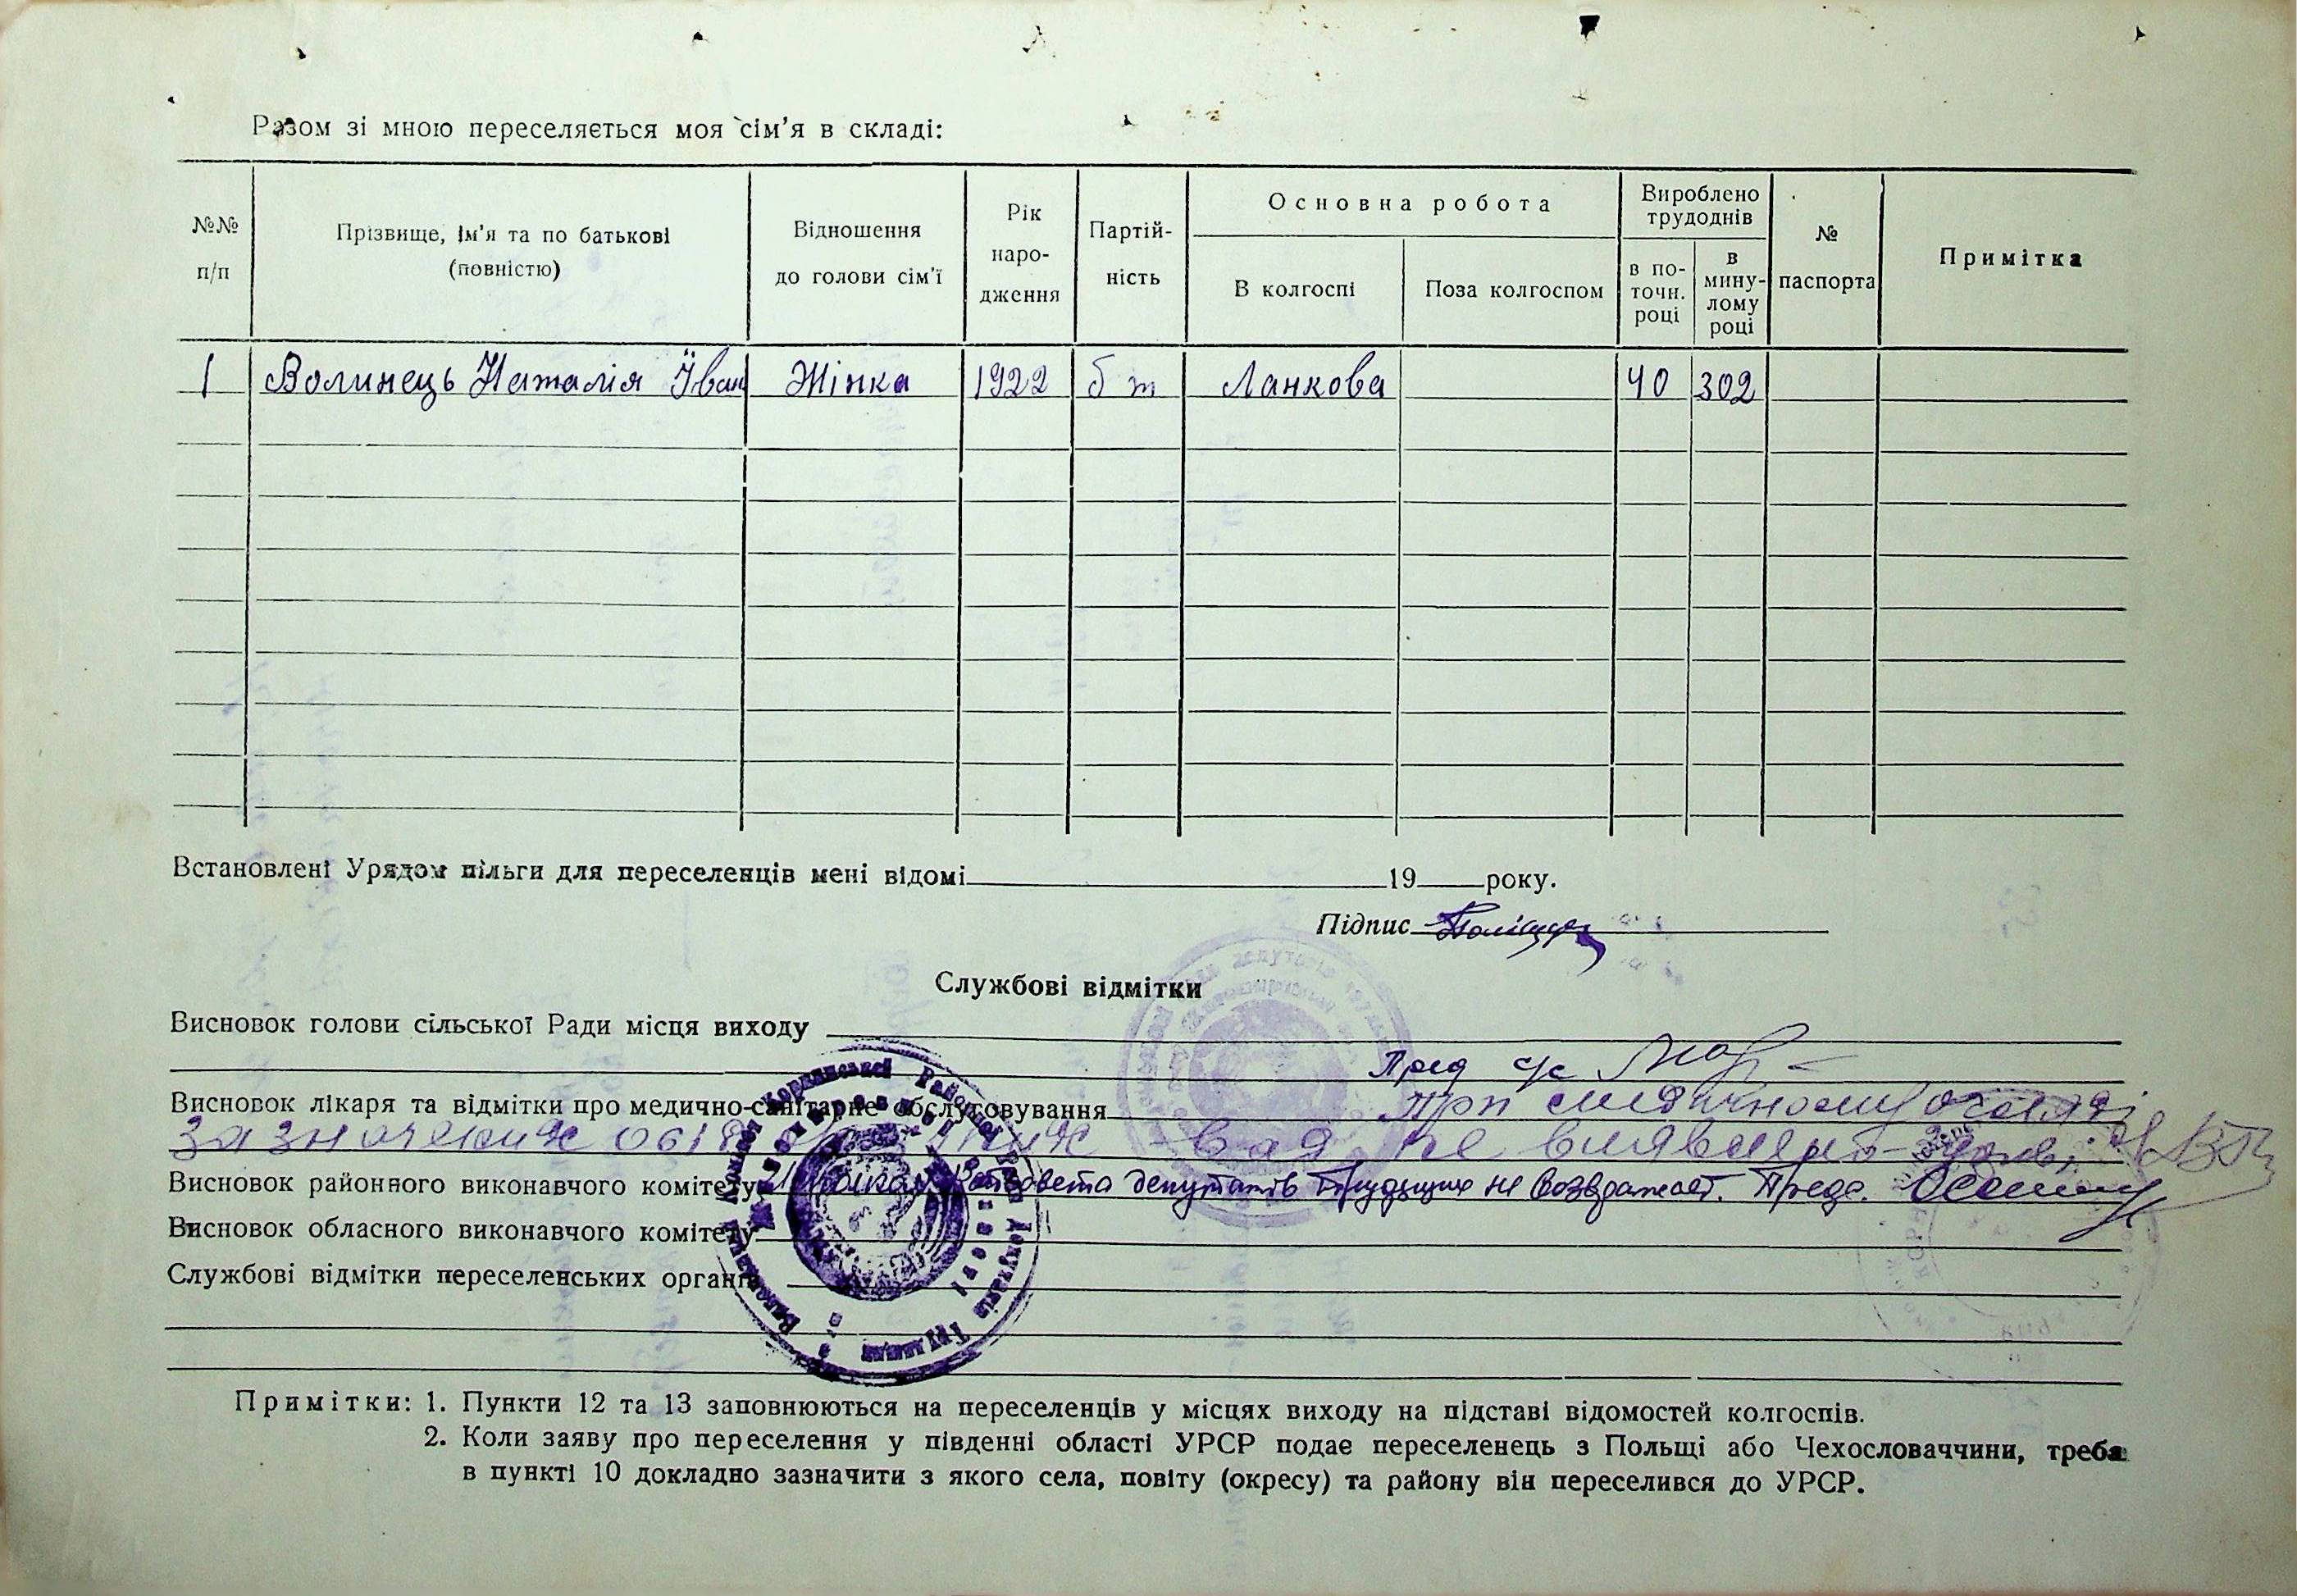 Разом зі мною переселяється моя сім'я в складі:
№№ п/п
Прізвище, ім'я та по батькові (повністю)
Відношення до голови сім'ї
Рік наро-дження
Партій-ність
Основна робота
В колгоспі
Поза колгоспом
Вироблено трудоднів
в по-точн. році
в мину-лому році
№ паспорта
Примітка
1 Волинець Наталія Іван Жінка 1922 б п Ланкова 40 302
Встановлені Урядом пільги для переселенців мені відомі 19 року.
Підпис
Службові відмітки
Висновок голови сільської Ради місця виходу
Пред с/с
Висновок лікаря та відмітки про медично-санітарне обслуговування При медичному огляді
зазначених не виявлено
Висновок районного виконавчого комітету депутатів трудящих не возражает. Предс.
Висновок обласного виконавчого комітету
Службові відмітки переселенських органів
Примітки: 1. Пункти 12 та 13 заповнюються на переселенців у місцях виходу на підставі відомостей колгоспів.
2. Коли заяву про переселення у південні області УРСР подає переселенець з Польщі або Чехословаччини, треба
в пункті 10 докладно зазначити з якого села, повіту (окресу) та району він переселився до УРСР.